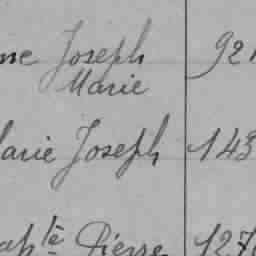 ne Joseph 921
Marie
arie Joseph 143
apte Pierre 127